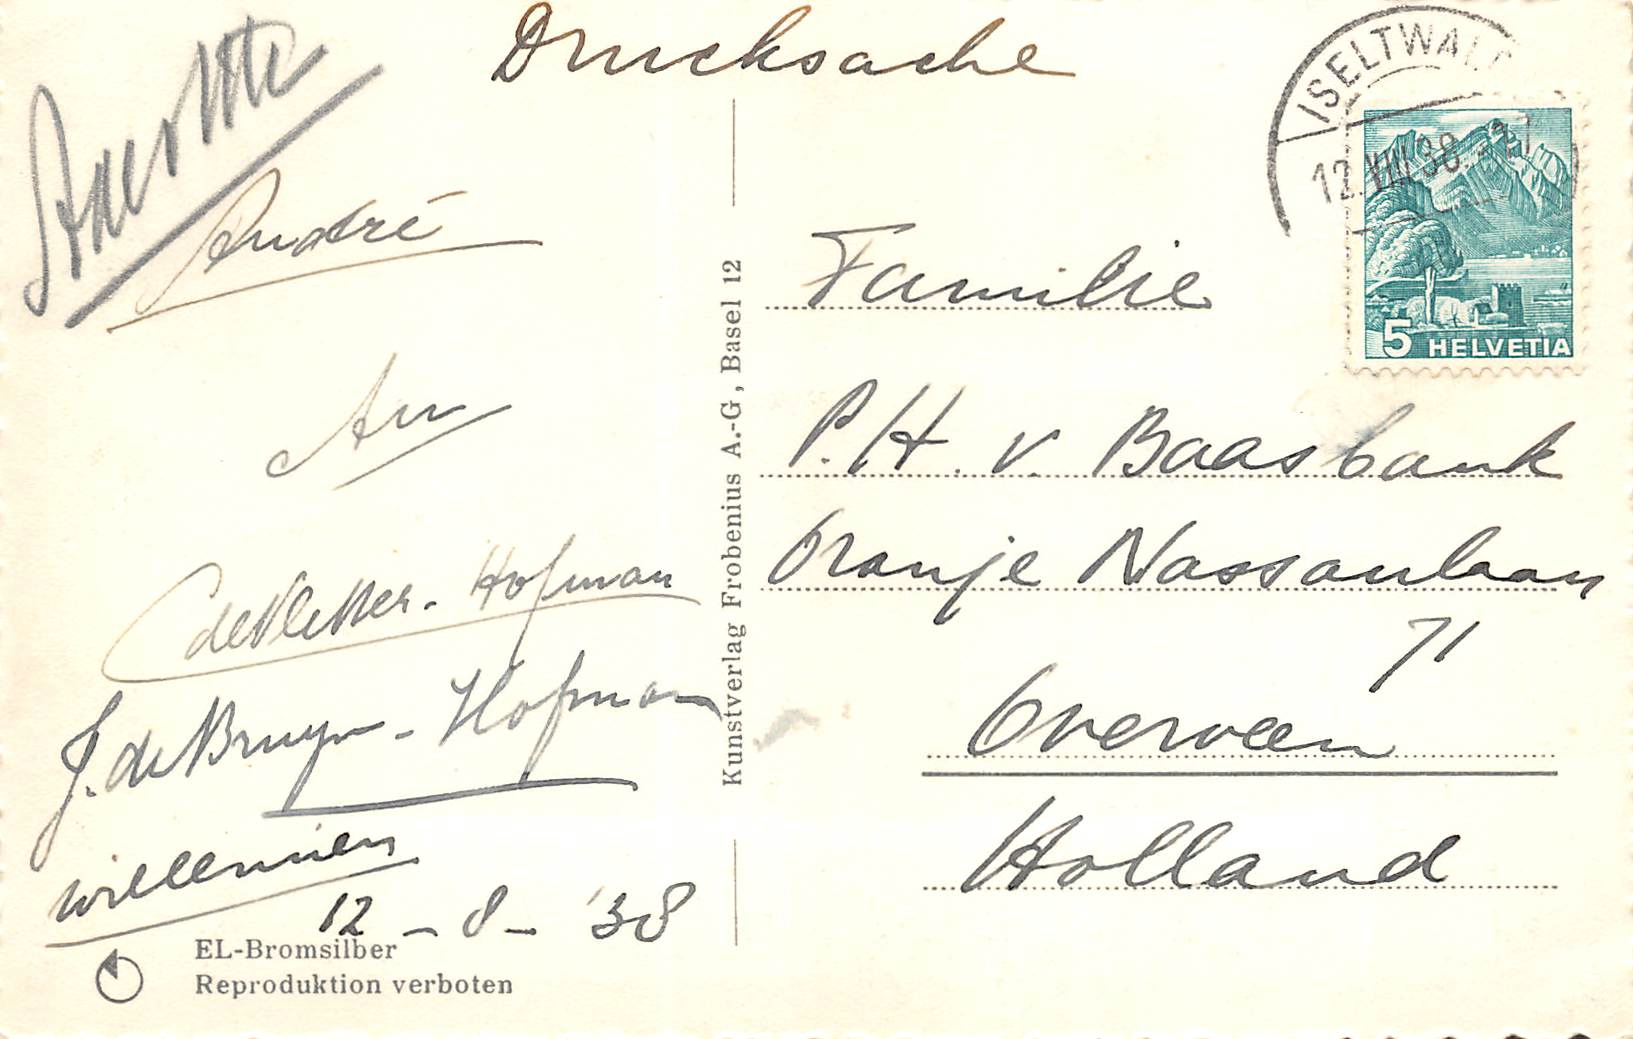 Drucksache
ISELTWALD
12.VIII.38
5 HELVETIA
André
An
C de Vletter-Hofman
J. de Bruyn-Hofman
Willemien
12-8-'38
EL-Bromsilber
Reproduktion verboten
Kunstverlag Frobenius A.-G, Basel 12
Familie
P.H. v. Baasbank
Oranje Nassaulaan
71
Overveen
Holland